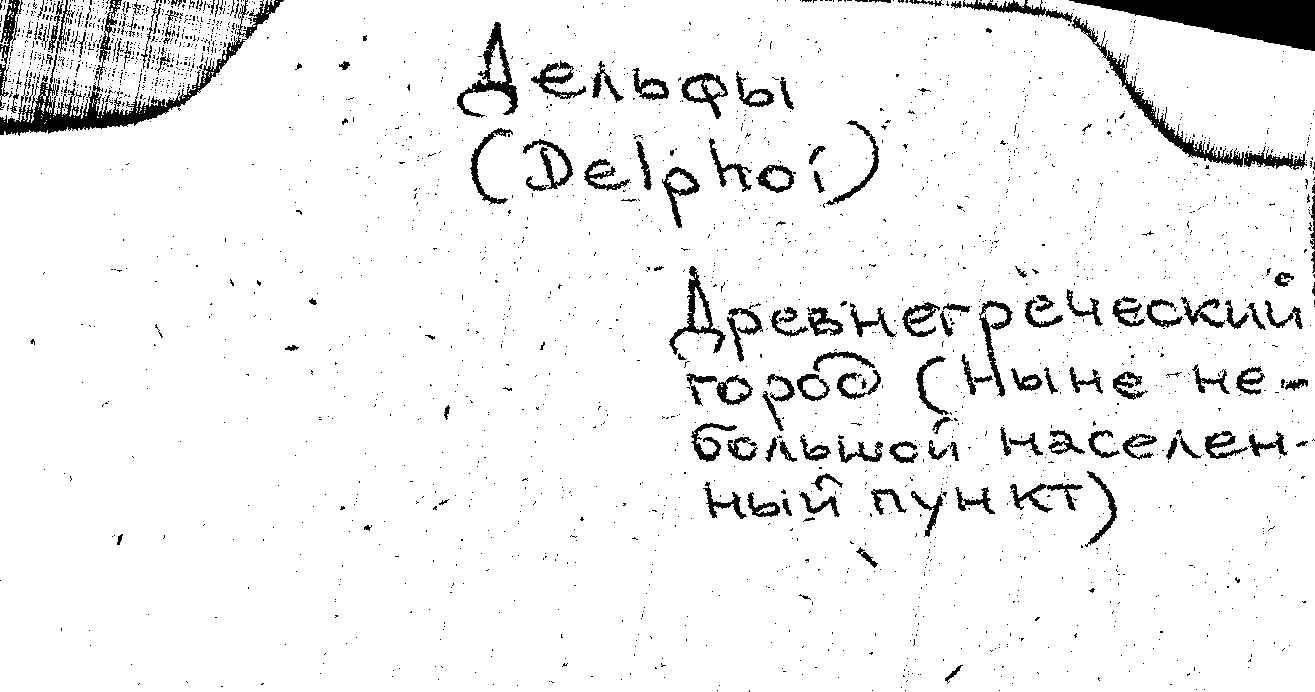 Дельфы
(Delphoi)
Древнегреческий
город (ныне не-
большой населен-
ный пункт)